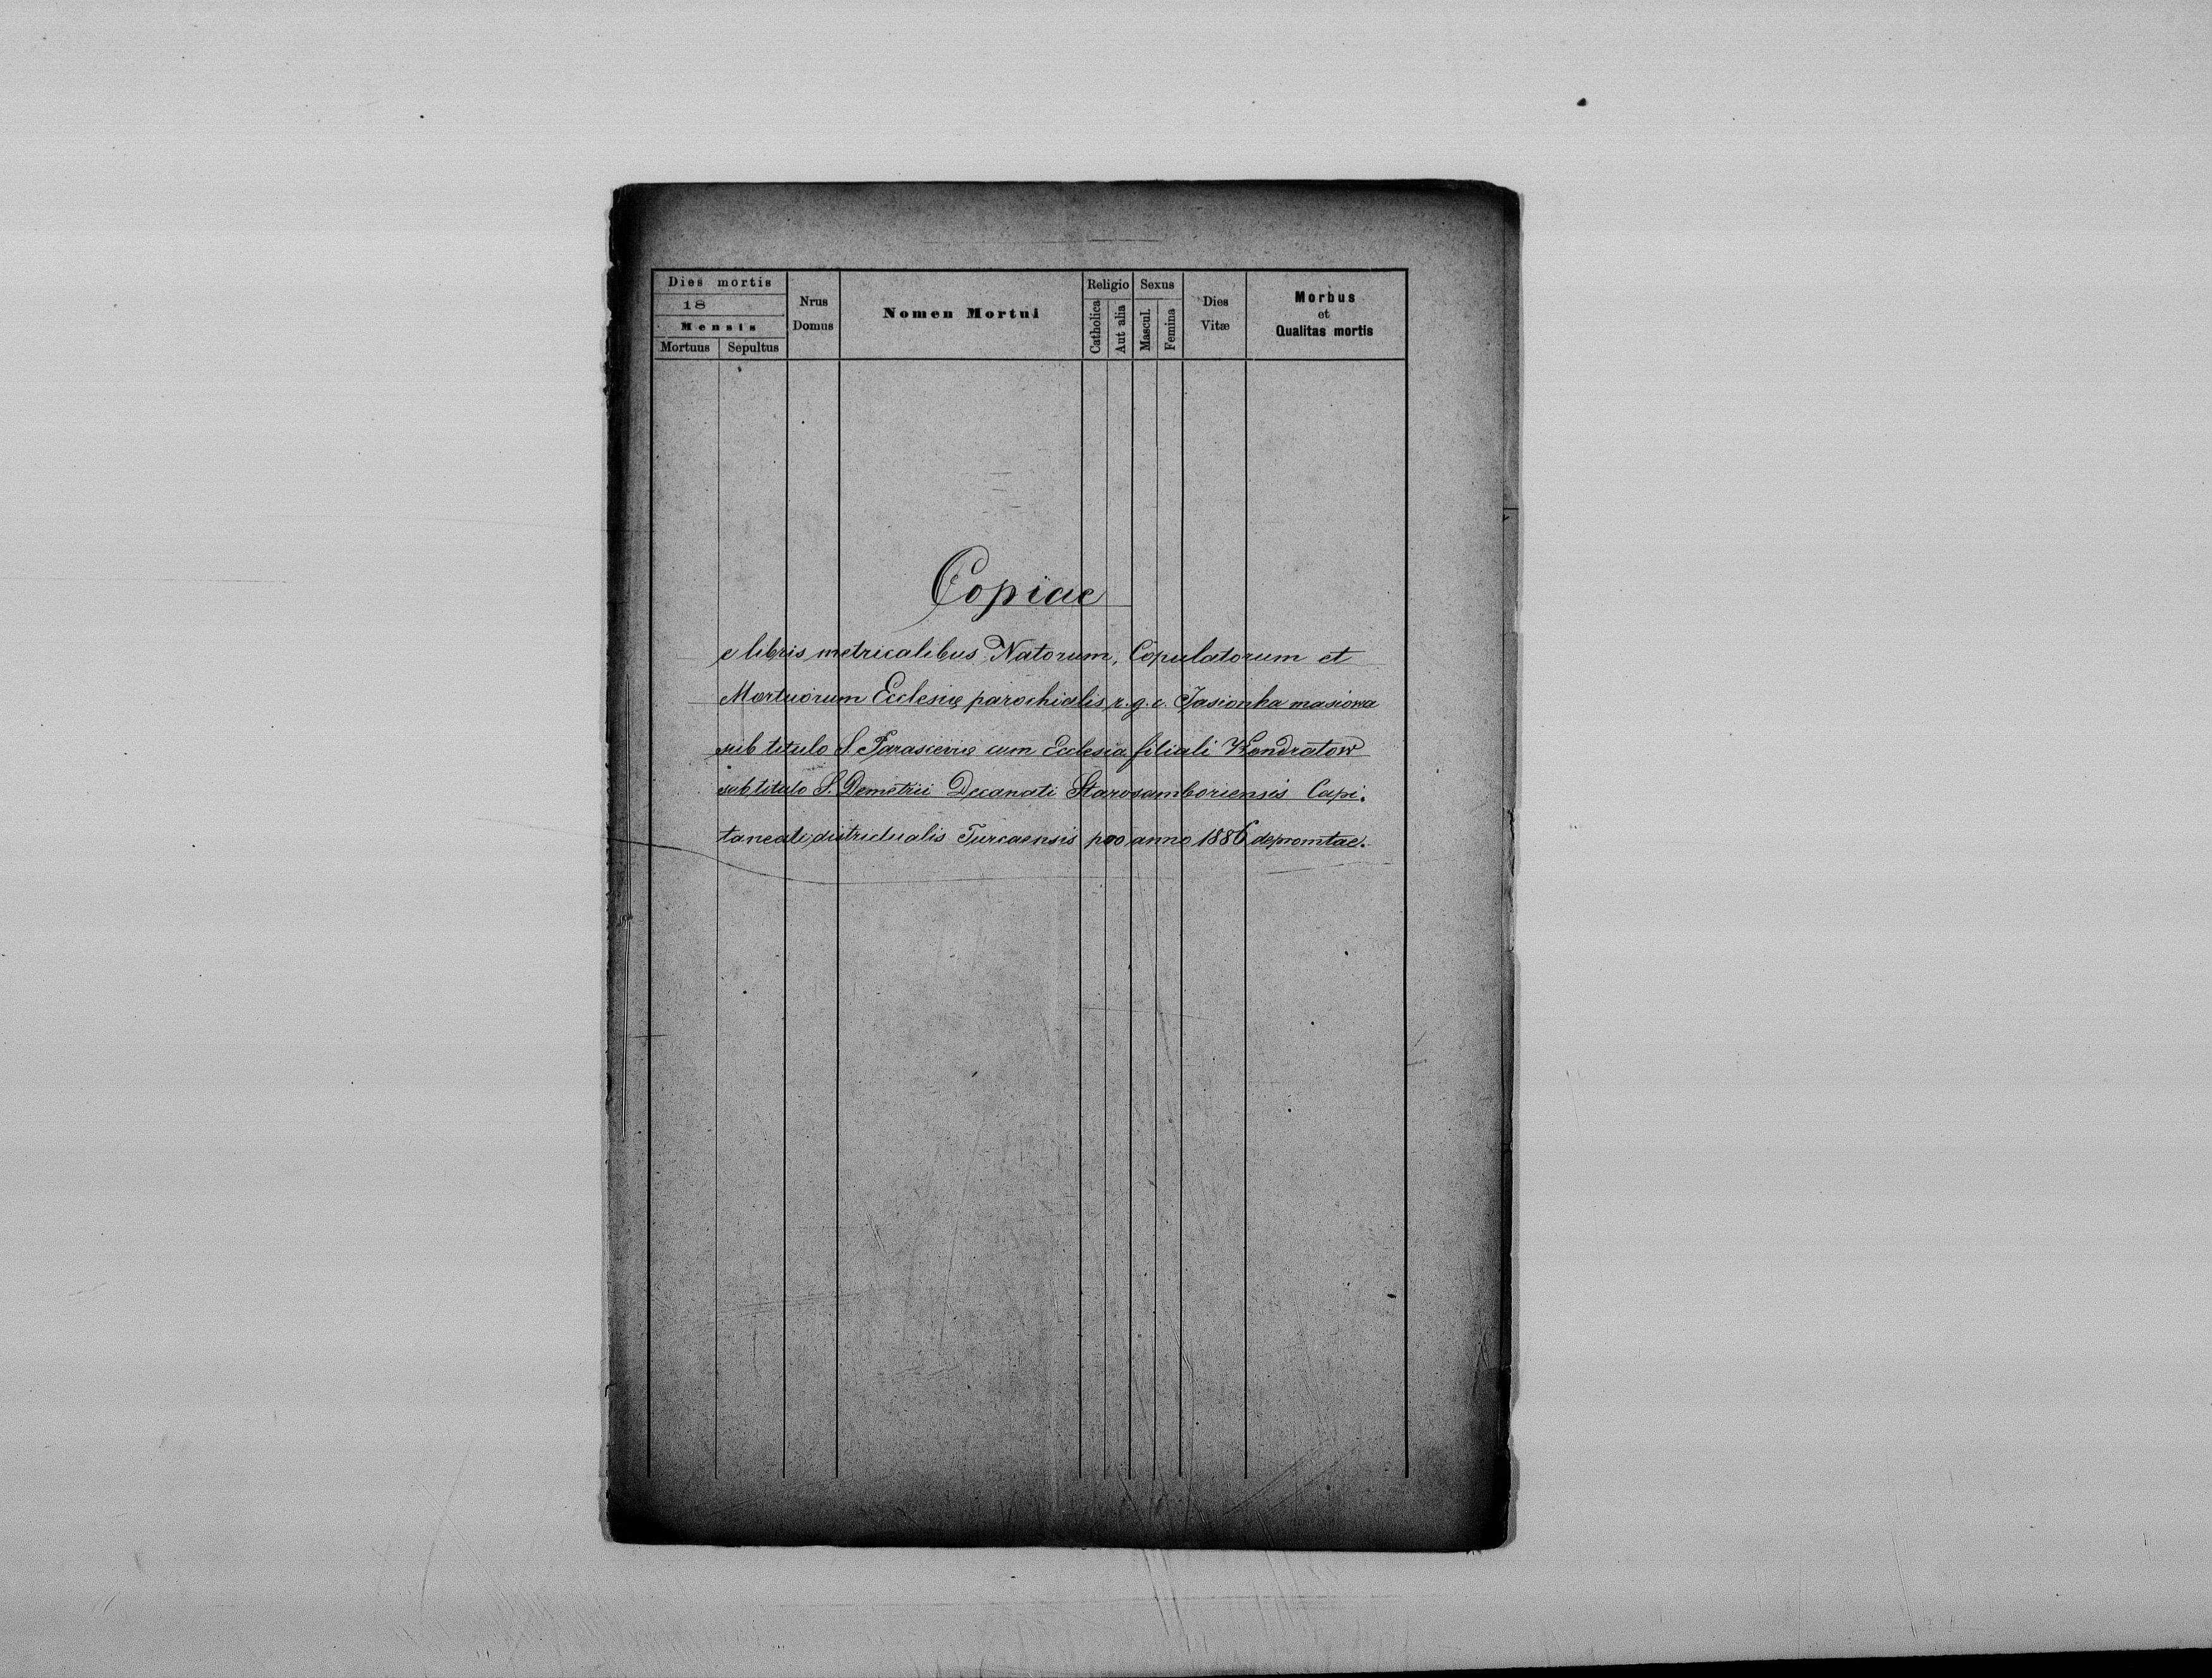 Dies mortis
18
Mensis
Mortuus Sepultus
Nrus
Domus
Nomen Mortui
Religio
Catholica
Aut alia
Sexus
Mascul.
Femina
Dies
Vitæ
Morbus
et
Qualitas mortis
Copiae
e libris metricalibus Natorum, Copulatorum et
Mortuorum Ecclesię parochialis r. g. c. Jasionka masiowa
sub titulo S. Parascevię cum Ecclesia filiali Kondratow
sub titulo S. Demetrii Decanati Starosamboriensis Capi.
taneali districtualis Turcaensis pro anno 1886 depromtae.